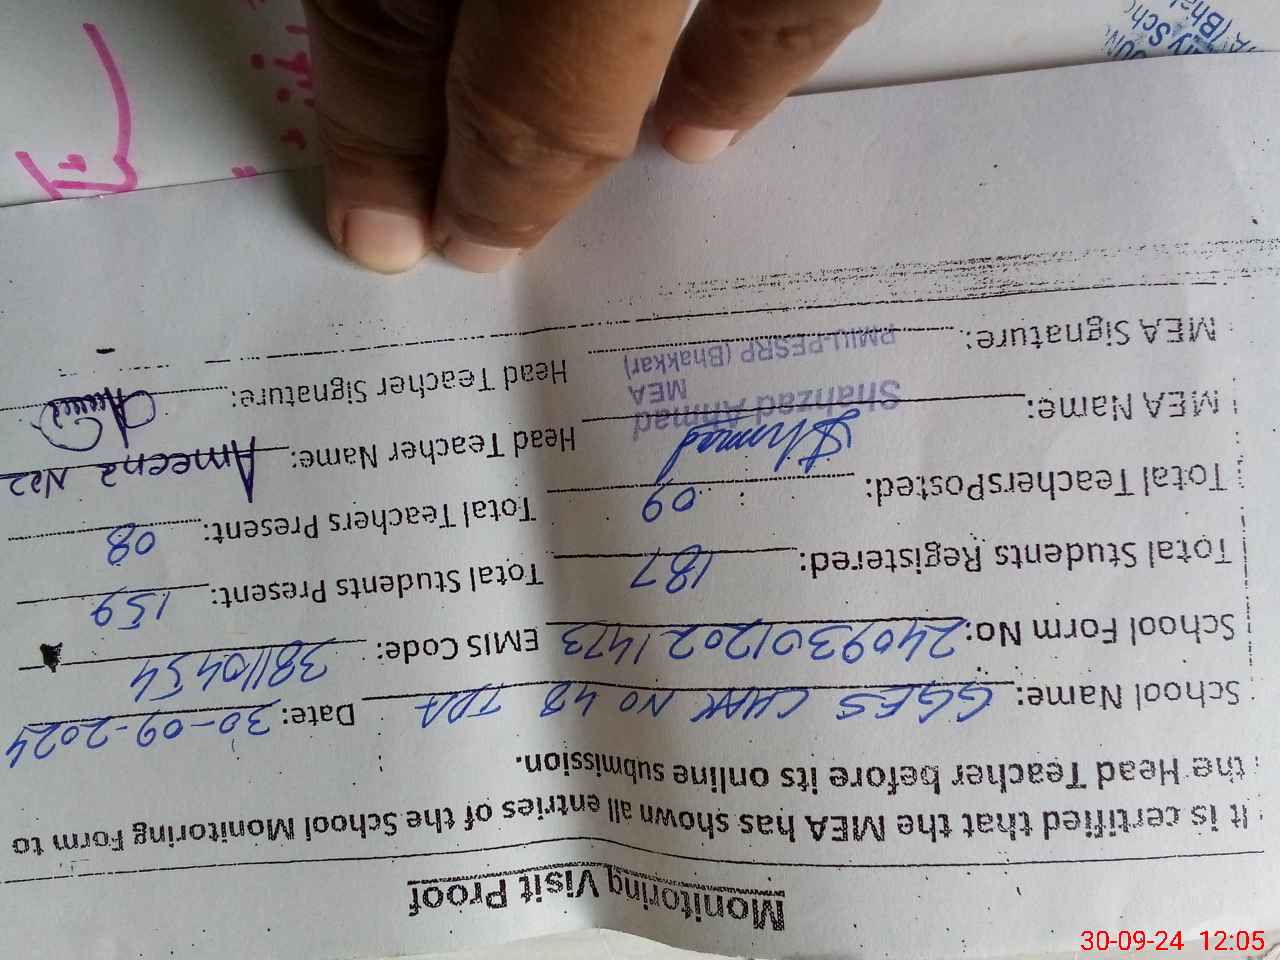 Monitoring Visit Proof
It is certified that the MEA has shown all entries of the School Monitoring Form to
the Head Teacher before its online submission.
School Name: GGES CHAK NO 48 TDA Date: 30-09-2024
School Form No: 2409301202 1473 EMIS Code: 38110454
Total Students Registered: 187 Total Students Present: 159
Total TeachersPosted: 09 Total Teachers Present: 08
MEA Name: Head Teacher Name: Ameena
Shahzad Ahmad
MEA
PMIU-PESRP (Bhakkar)
MEA Signature: Head Teacher Signature:
30-09-24 12:05